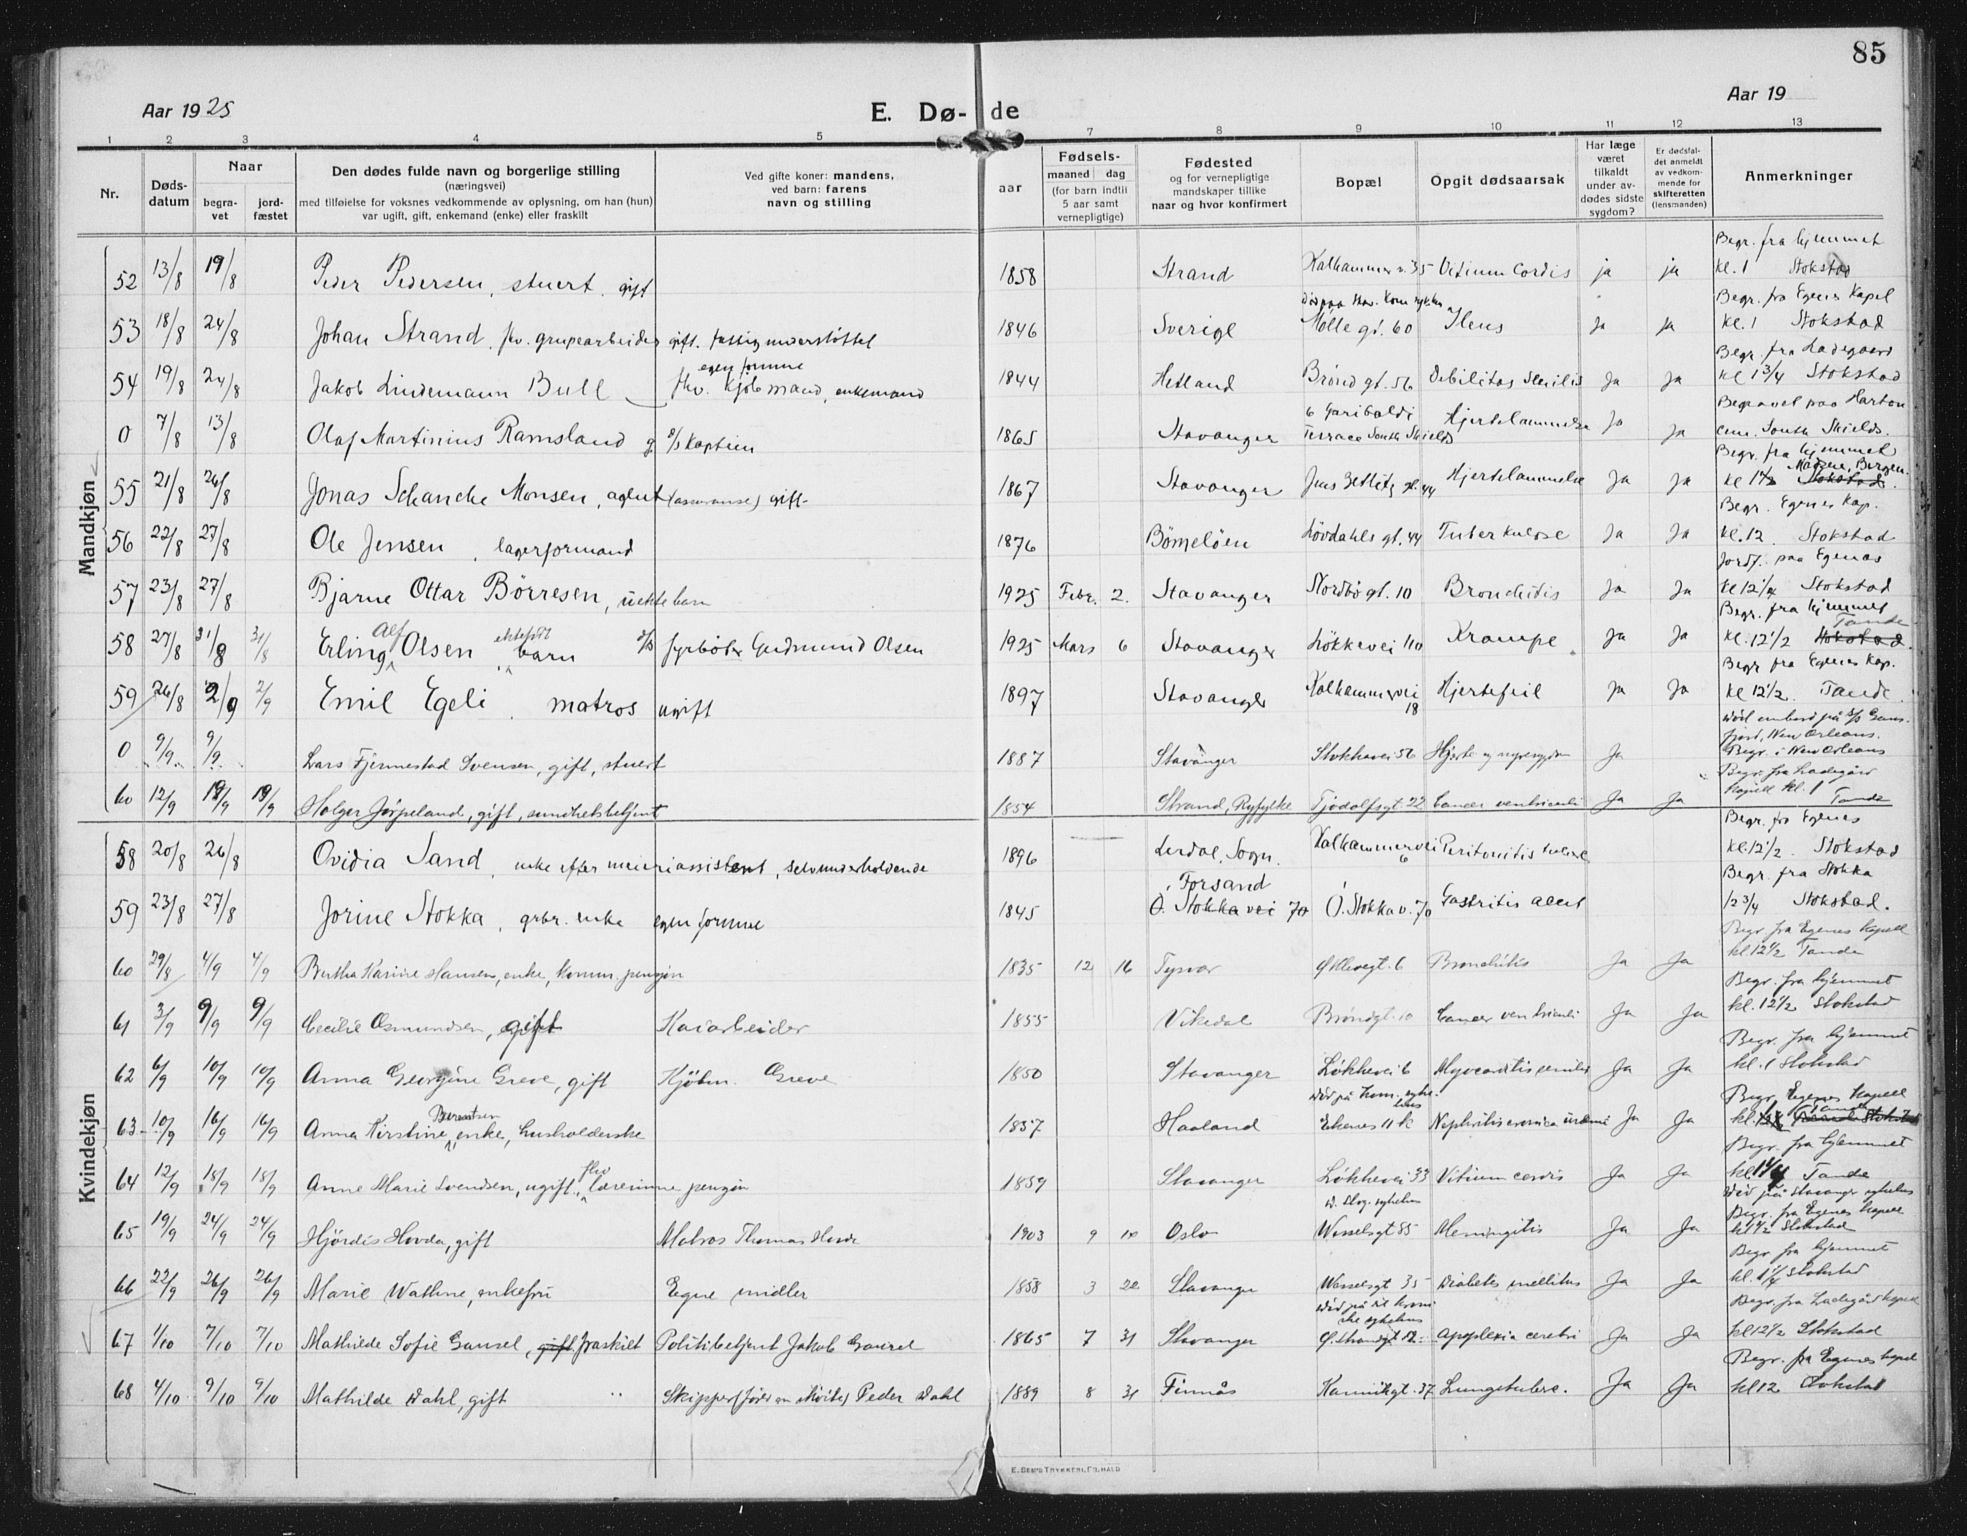 85
Aar 1925
E. Dø- de
Aar 19
1 2 3 4 5 6 7 8 9 10 11 12 13
Nr.
Døds-datum
Naar
begra-vet
jord-fæstet
Den dødes fulde navn og borgerlige stilling
(næringsvei)
med tilføielse for voksnes vedkommende av oplysning, om han (hun)
var ugift, gift, enkemand (enke) eller fraskilt
Ved gifte koner: mandens,
ved barn: farens
navn og stilling
Fødsels-
aar
maaned dag
(for barn indtil
5 aar samt
vernepligtige)
Fødested
og for vernepligtige
mandskaper tillike
naar og hvor konfirmert
Bopæl
Opgit dødsaarsak
Har læge
været
tilkaldt
under av-
dødes sidste
sygdom?
Er dødsfal-
det anmeldt
av vedkom-
mende for
skifteretten
(lensmanden)
Anmerkninger
Mandkjøn
52 13/8 19/8 Peder Pedersen, stuert, gift 1858 Strand Kalhammerv. 35 Vitium Cordis ja ja Begr. fra hjemmet kl. 1 Stokstad
53 18/8 24/8 Johan Strand, fhv. grupearbeider gift. fattigunderstøttet 1846 Sverige Mølle gt. 60 Ileus ja ja Begr. fra Egenes Kapel kl. 1 Stokstad
54 19/8 24/8 Jakob Lindemann Bull fhv. kjøbmand, enkemand egen formue 1844 Hetland Brønd gt. 56 Debilitas Senilis ja ja Begr. fra Ladegaard kl 1 3/4 Stokstad
0 7/8 13/8 Olaf Martinius Ramsland g s/s kaptein 1865 Stavanger 6 Garibaldi Terrace South Shields Hjertelammelse ja ja Begravet paa Harton cem. South Shields.
55 21/8 26/8 Jonas Schancke Monsen, agent (assuranse) gift 1867 Stavanger Jens Zetlitz gt. 44 Hjertelammelse ja ja Begr. fra hjemmet kl 1 1/2 Stokstad. Bergen.
56 22/8 27/8 Ole Jensen, lagerformand 1876 Bømeløen Løvdahls gt. 44 Tuberkulose ja ja Begr. Egenes Kap. kl. 12. Stokstad
57 23/8 27/8 Bjarne Ottar Børresen, uekte barn 1925 Febr. 2. Stavanger Nordbø gt. 10 Bronchitis ja ja Jordf. paa Egenes kl 12 1/4 Stokstad
58 27/8 31/8 31/8 Erling Alf Olsen ektefødt barn fyrbøter Gudmund Olsen 1925 Mars 6 Stavanger Løkkevei 110 Krampe ja ja Begr. fra hjemmet kl. 12 1/2 Stokstad Tande
59 26/8 2/9 2/9 Emil Egeli, matros ugift 1897 Stavanger Kalhammervei 18 Hjertefeil ja ja Begr fra Egenes Kap. kl 12 1/2. Tande.
0 9/9 9/9 Lars Fjermestad Svensen, gift, stuert 1887 Stavanger Stokkavei 56 Ja New Orleans. Begr. i New Orleans
60 12/9 19/9 19/9 Holger Jørpeland, gift, sundhetsbetjent 1854 Strand, Ryfylke Tjodolfsgt. 22 Cancer ventriculi Ja Ja Begr. fra Ladegård kapell kl. 1 Tande
Kvindekjøn
58 20/8 26/8 Ovidia Sand, enke efter meieriassistent, selvunderholdende 1896 Lerdal, Sogn. Kalhammervei 6 Peritonitis Begr. fra Egenes kl. 12 1/2. Stokstad
59 23/8 27/8 Jorine Stokka, grbr. enke egen formue 1845 Forsand Ø. Stokka vei 70 Ø. Stokka v. 70 Gastritis Begr. fra Stokka 12 3/4 Stokstad.
60 29/8 4/9 4/9 Bertha Karine Hansen, enke, komm. pensjon 1835 12 16 Tysvær Bronchitis Ja Ja Begr. fra Egenes Kapell kl 12 1/2 Tande
61 3/9 9/9 9/9 Cecilie Osmundsen, gift Kaiarbeider 1855 Vikedal Brøndgt. 10 Cancer ventriculi Ja Ja Begr. fra hjemmet kl. 12 1/2 Stokstad
62 6/9 10/9 10/9 Anna Georgine Greve, gift Kjøbm. Greve 1850 Stavanger Løkkevei 6 Myocarditis senilis Ja Ja Begr. fra hjemmet kl. 1 Stokstad
63 10/9 16/9 16/9 Anna Kirstine Berentsen, enke, husholderske 1857 Haaland Ekenes 11 Nephritis cronica Ja Ja Begr. Egenes Kapell Tande
64 12/9 18/9 18/9 Anne Marie Svendsen, ugift, fhv lærerinne pensjon 1859 Stavanger Løkkevei 33 Vitium cordis Ja Ja Begr. fra hjemmet kl 1 1/4 Tande
65 19/9 24/9 24/9 Hjørdis Hovda, gift Matros Thomas Hovda 1903 9 10 Oslo Wesselsgt 85 Meningitis Ja Ja Død på Stavanger sykehus Begr. fra Egenes kapell kl 1 1/2 Stokstad
66 22/9 26/9 26/9 Marie Wathne, enkefru Egne midler 1858 3 22 Stavanger Wesselsgt 35 Diabetes mellitus Ja Ja Begr fra hjemmet kl. 1 1/4 Stokstad
67 1/10 7/10 7/10 Mathilde Sofie Gausel, gift fraskilt Politibetjent Jakob Gausel 1865 7 31 Stavanger Ø. Strandgt 52 Apoplexia cerebri Ja Ja Begr. fra Ladegård kapell kl 12 1/2 Stokstad
68 4/10 9/10 9/10 Mathilde Dahl, gift " Skipper Peder Dahl 1889 8 31 Finnås Kannikgt. 37 Lungetuberc. Ja Ja Begr. fra Egenes kapel kl 12 Stokstad
E. SEM'S TRYKKERI, FR. HALD